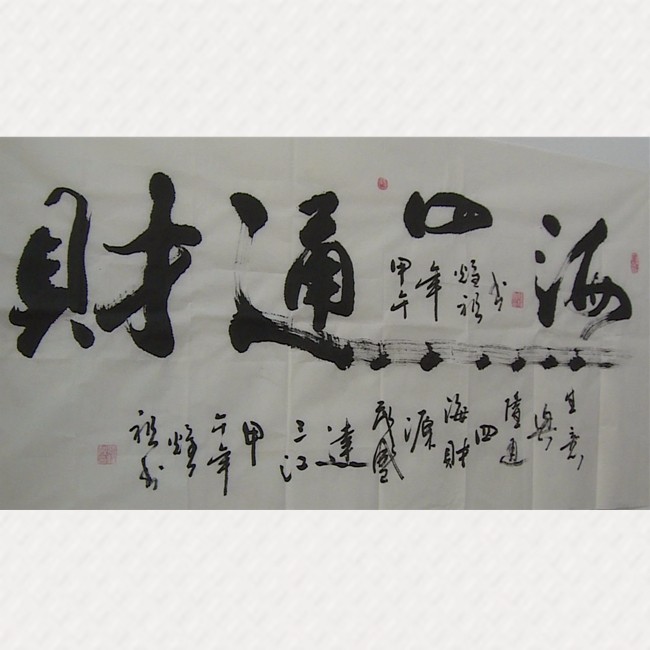 財通四海
甲午年祖书
生意興隆通四海財源茂盛達三江甲午年祖书